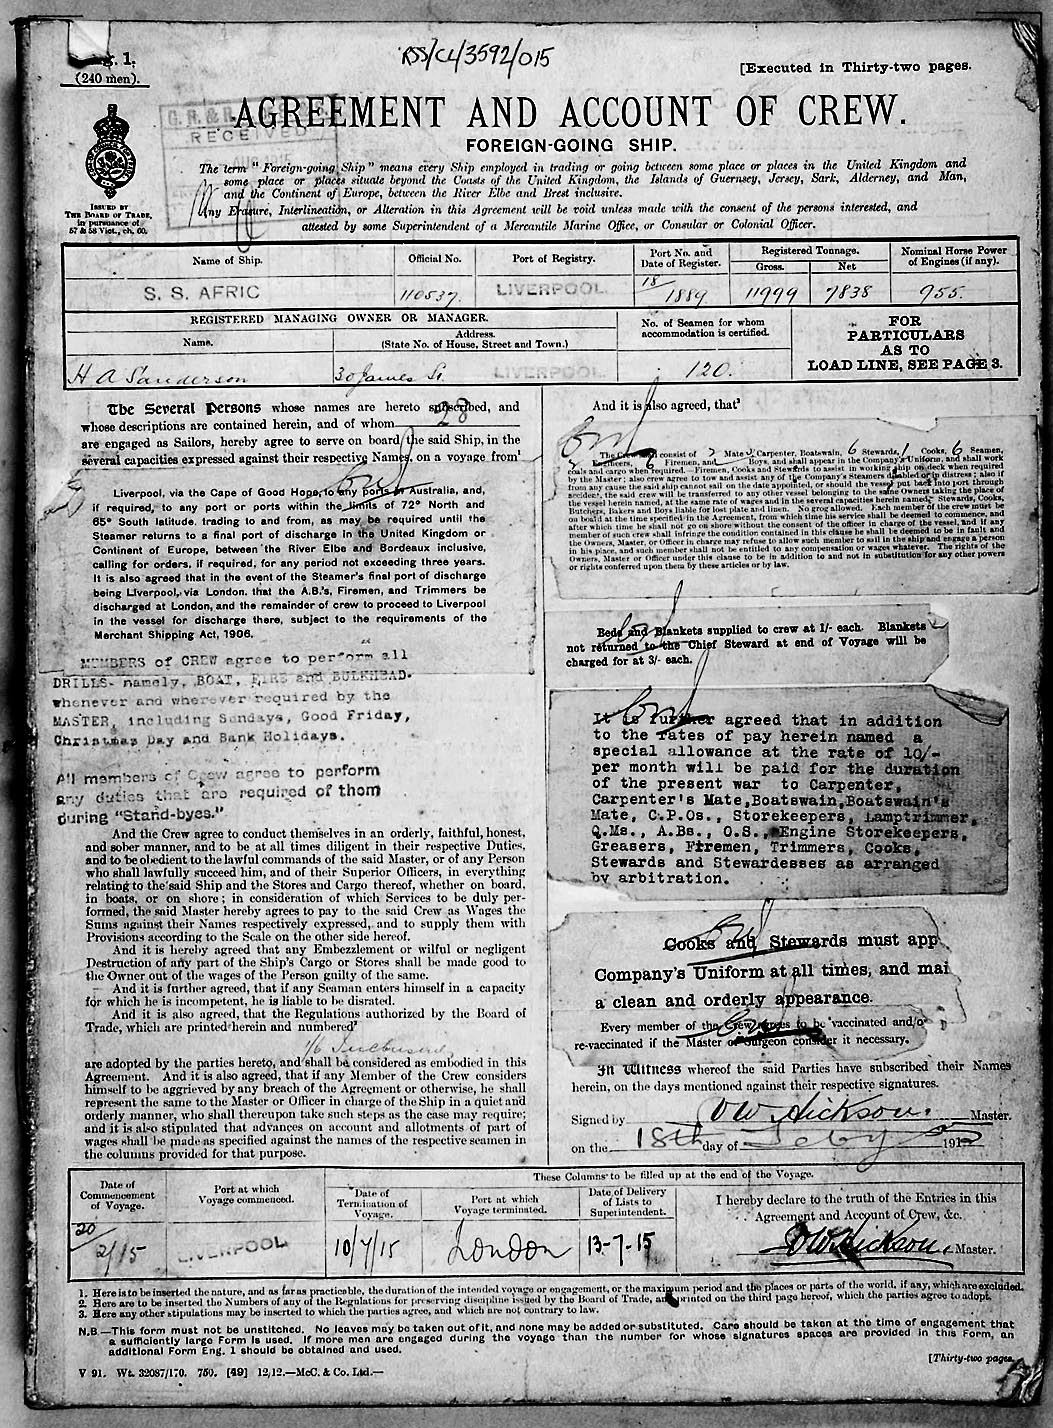 RSS/CL/3592/015
g. 1.
(240 men).
[Executed in Thirty-two pages.
RECEIVED
AGREEMENT AND ACCOUNT OF CREW.
FOREIGN-GOING SHIP.
The term "Foreign-going Ship" means every Ship employed in trading or going between some place or places in the United Kingdom and
some place or places situate beyond the Coasts of the United Kingdom, the Islands of Guernsey, Jersey, Sark, Alderney, and Man,
and the Continent of Europe, between the River Elbe and Brest inclusive.
Any Erasure, Interlineation, or Alteration in this Agreement will be void unless made with the consent of the persons interested, and
attested by some Superintendent of a Mercantile Marine Office, or Consular or Colonial Officer.
ISSUED BY
THE BOARD OF TRADE,
in pursuance of
57 & 58 Vict., ch. 60.
Name of Ship.
Official No.
Port of Registry.
Port No. and
Date of Register.
Registered Tonnage.
Gross.
Net
Nominal Horse Power
of Engines (if any).
S. S. AFRIC
110537.
LIVERPOOL
18/1889
11999
7838
955.
REGISTERED MANAGING OWNER OR MANAGER.
Name.
Address.
(State No. of House, Street and Town.)
No. of Seamen for whom
accommodation is certified.
FOR
PARTICULARS
AS TO
LOAD LINE, SEE PAGE 3.
H A Sanderson
30 James St.
LIVERPOOL
120.
The Several Persons whose names are hereto subscribed, and
whose descriptions are contained herein, and of whom 28
are engaged as Sailors, hereby agree to serve on board the said Ship, in the
several capacities expressed against their respective Names, on a voyage from¹
Liverpool, via the Cape of Good Hope, to any ports in Australia, and,
if required, to any port or ports within the limits of 72° North and
65° South latitude. trading to and from, as may be required until the
Steamer returns to a final port of discharge in the United Kingdom or
Continent of Europe, between the River Elbe and Bordeaux inclusive,
calling for orders, if required, for any period not exceeding three years.
It is also agreed that in the event of the Steamer's final port of discharge
being Liverpool, via London. that the A.B.'s, Firemen, and Trimmers be
discharged at London, and the remainder of crew to proceed to Liverpool
in the vessel for discharge there, subject to the requirements of the
Merchant Shipping Act, 1906.
MEMBERS of CREW agree to perform all
DRILLS- namely, BOAT, FIRE and BULKHEAD-
whenever and wherever required by the
MASTER, including Sundays, Good Friday,
Christmas Day and Bank Holidays.
All members of Crew agree to perform
any duties that are required of them
during "Stand-byes."
And the Crew agree to conduct themselves in an orderly, faithful, honest,
and sober manner, and to be at all times diligent in their respective Duties,
and to be obedient to the lawful commands of the said Master, or of any Person
who shall lawfully succeed him, and of their Superior Officers, in everything
relating to the said Ship and the Stores and Cargo thereof, whether on board,
in boats, or on shore; in consideration of which Services to be duly per-
formed, the said Master hereby agrees to pay to the said Crew as Wages the
Sums against their Names respectively expressed, and to supply them with
Provisions according to the Scale on the other side hereof.
And it is hereby agreed that any Embezzlement or wilful or negligent
Destruction of any part of the Ship's Cargo or Stores shall be made good to
the Owner out of the wages of the Person guilty of the same.
And it is further agreed, that if any Seaman enters himself in a capacity
for which he is incompetent, he is liable to be disrated.
And it is also agreed, that the Regulations authorized by the Board of
Trade, which are printed herein and numbered²
1/6 Inclusive,
are adopted by the parties hereto, and shall be considered as embodied in this
Agreement. And it is also agreed, that if any Member of the Crew considers
himself to be aggrieved by any breach of the Agreement or otherwise, he shall
represent the same to the Master or Officer in charge of the Ship in a quiet and
orderly manner, who shall thereupon take such steps as the case may require;
and it is also stipulated that advances on account and allotments of part of
wages shall be made as specified against the names of the respective seamen in
the columns provided for that purpose.
And it is also agreed, that³
The Crew consist of 2 Mate Carpenter, Boatswain, 6 Stewards, 1 Cooks, 6 Seamen,
Engineers, Firemen, and Boys, and shall appear in the Company's Uniform, and shall work
coals and cargo when required. Firemen, Cooks and Stewards to assist in working ship on deck when required
by the Master; also crew agree to tow and assist any of the Company's Steamers disabled or in distress; also if
from any cause the said ship cannot sail on the date appointed, or should the vessel put back into port through
accident, the said crew will be transferred to any other vessel belonging to the same Owners taking the place of
the vessel herein named, at the same rate of wages and in the several capacities herein named. Stewards, Cooks,
Butchers, Bakers and Boys liable for lost plate and linen. No grog allowed. Each member of the crew must be
on board at the time specified in the Agreement, from which time his service shall be deemed to commence, and
after which time he shall not go on shore without the consent of the officer in charge of the vessel, and if any
member of such crew shall infringe the condition contained in this clause he shall be deemed to be in fault and
the Owners, Master, or Officer in charge may refuse to allow such member to sail in the ship and engage a person
in his place, and such member shall not be entitled to any compensation or wages whatever. The rights of the
Owners, Master or Officer under this clause to be in addition to and not in substitution for any other powers
or rights conferred upon them by these articles or by law.
Beds and Blankets supplied to crew at 1/- each. Blankets
not returned to the Chief Steward at end of Voyage will be
charged for at 3/- each.
It is further agreed that in addition
to the rates of pay herein named a
special allowance at the rate of 10/-
per month will be paid for the duration
of the present war to Carpenter,
Carpenter's Mate, Boatswain, Boatswain's
Mate, C.P.Os., Storekeepers, Lamptrimmer,
Q.Ms., A.Bs., O.S., Engine Storekeepers,
Greasers, Firemen, Trimmers, Cooks,
Stewards and Stewardesses as arranged
by arbitration.
Cooks and Stewards must app
Company's Uniform at all times, and mai
a clean and orderly appearance.
Every member of the Crew agrees to be vaccinated and/o
re-vaccinated if the Master or Surgeon consider it necessary.
In Witness whereof the said Parties have subscribed their Names
herein, on the days mentioned against their respective signatures.
Signed by D W Dickson. Master.
on the 18th day of Feby 191
Date of
Commencement
of Voyage.
Port at which
Voyage commenced.
These Columns to be filled up at the end of the Voyage.
Date of
Termination of
Voyage.
Port at which
Voyage terminated.
Date of Delivery
of Lists to
Superintendent.
I hereby declare to the truth of the Entries in this
Agreement and Account of Crew, &c.
20/2/15
LIVERPOOL
10/7/15
London
13-7-15
D W Dickson, Master.
1. Here is to be inserted the nature, and as far as practicable, the duration of the intended voyage or engagement, or the maximum period and the places or parts of the world, if any, which are excluded.
2. Here are to be inserted the Numbers of any of the Regulations for preserving discipline issued by the Board of Trade, and printed on the third page hereof, which the parties agree to adopt.
3. Here any other stipulations may be inserted to which the parties agree, and which are not contrary to law.
N.B.—This form must not be unstitched. No leaves may be taken out of it, and none may be added or substituted. Care should be taken at the time of engagement that
a sufficiently large Form is used. If more men are engaged during the voyage than the number for whose signatures spaces are provided in this Form, an
additional Form Eng. 1 should be obtained and used.
[Thirty-two pages.
V 91. Wt. 32087/170. 750. [49] 12,12.—McC. & Co. Ltd.—